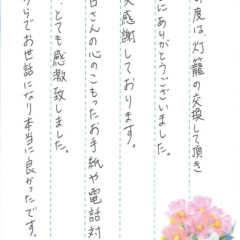 の度は、灯籠の交換して頂き
にありがとうございました。
感謝しております。
さんの心のこもったお手紙や電話対
、とても感激致しました。
らでお世話になり本当に良かったです。